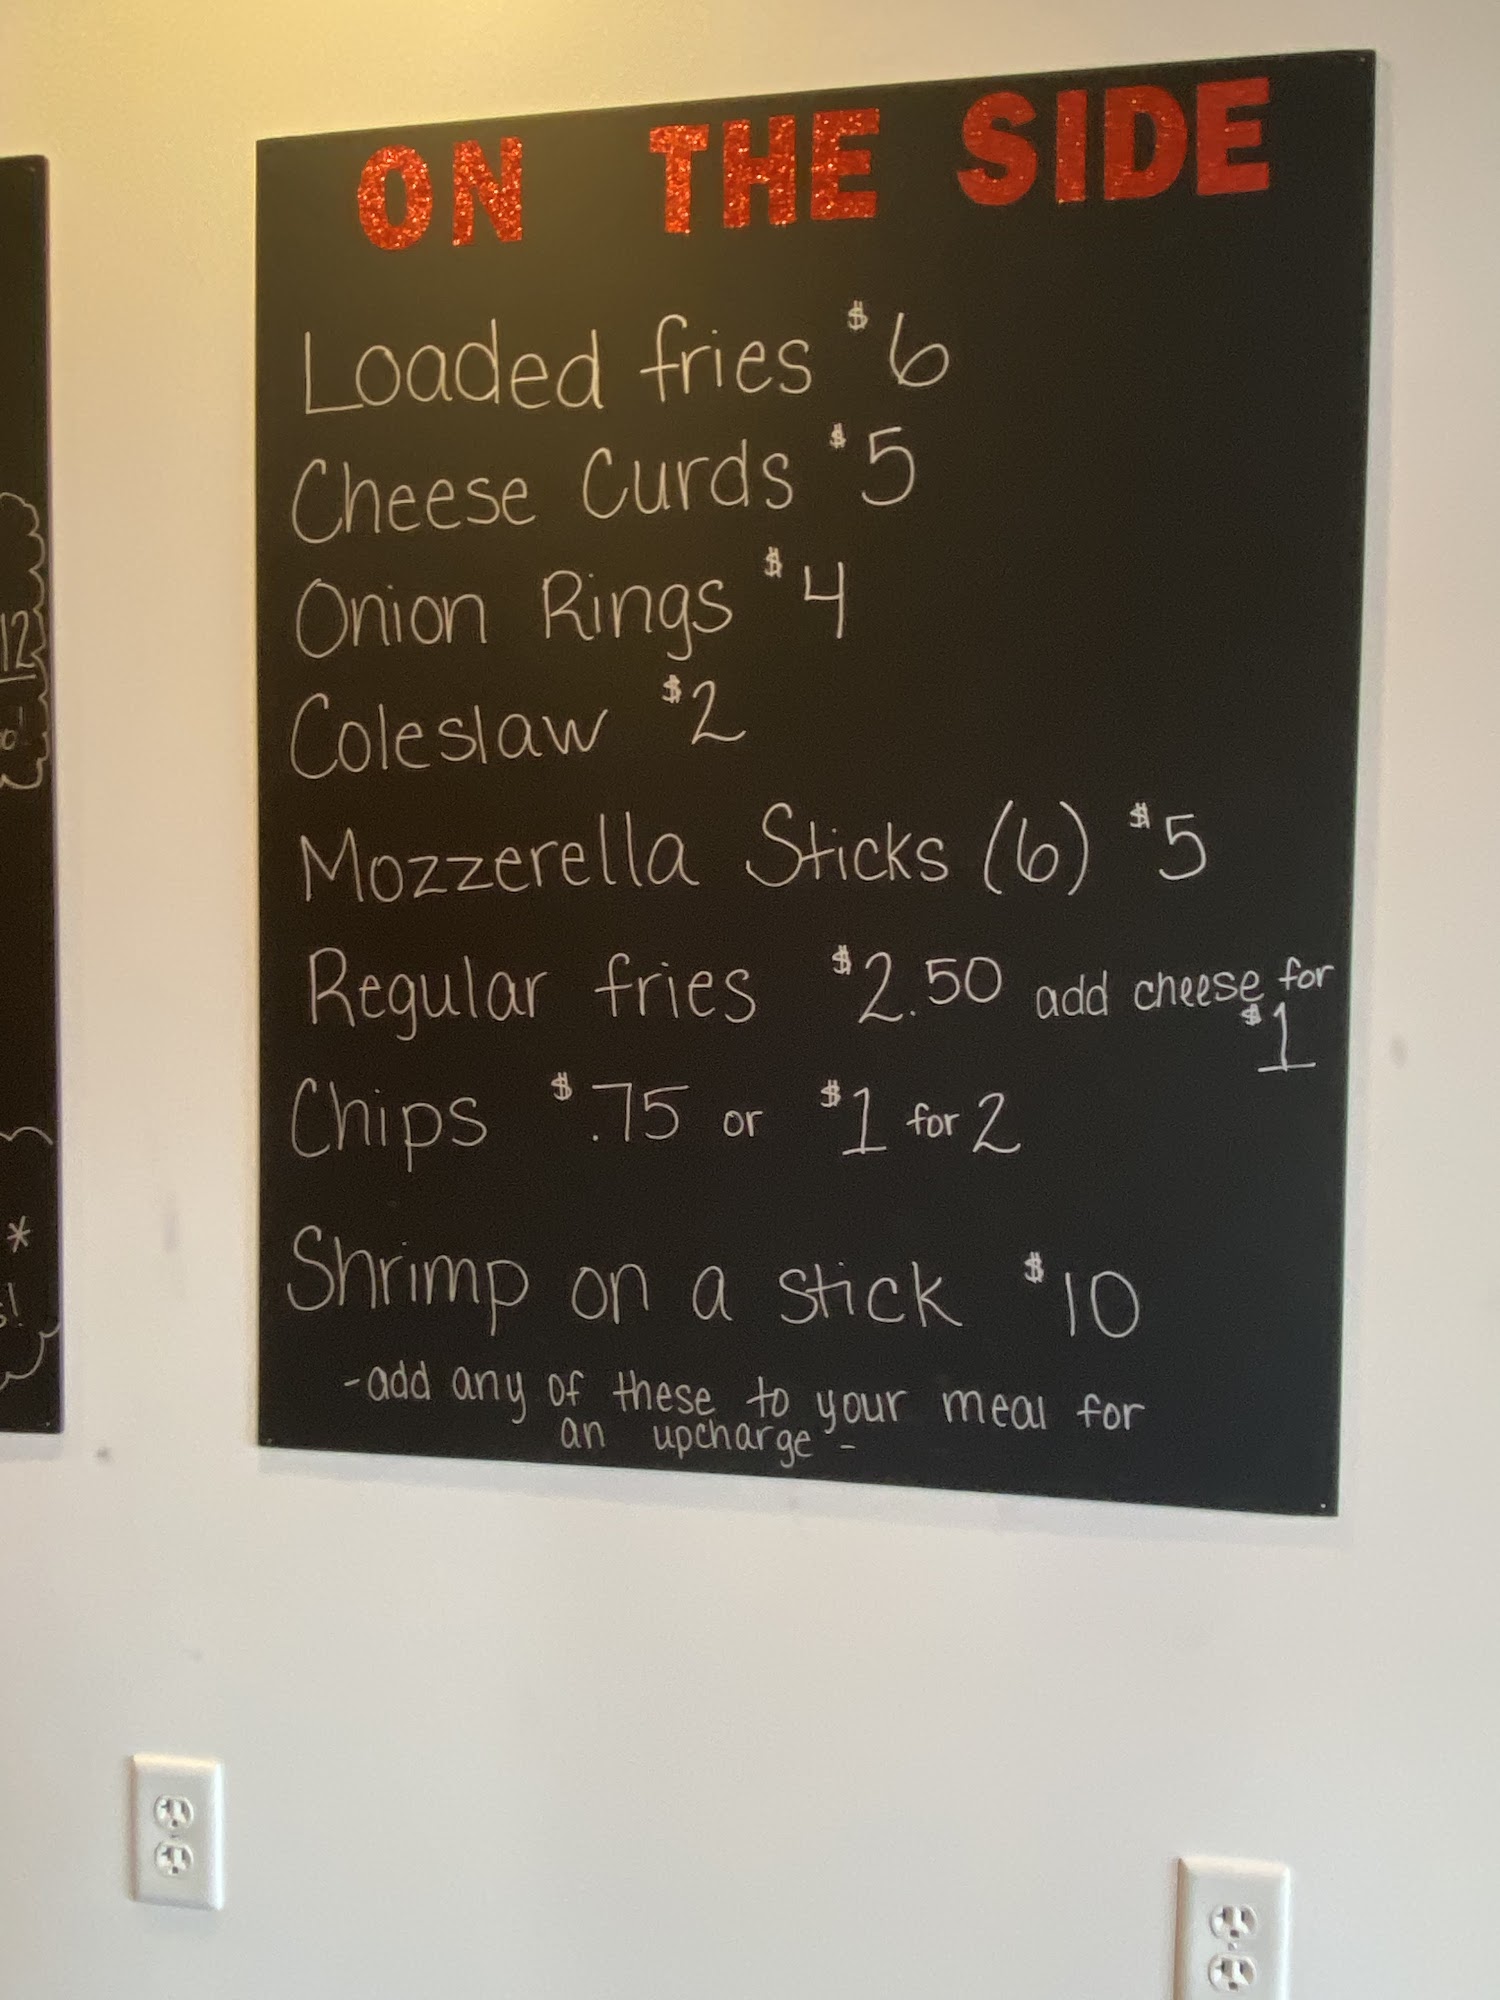 ON THE SIDE
Loaded fries $6
Cheese Curds $5
Onion Rings $4
Coleslaw $2
Mozzerella Sticks (6) $5
Regular fries $2.50 add cheese for
$1
Chips $.75 or $1 for 2
Shrimp on a stick $10
-add any of these to your meal for
an upcharge-
12
*